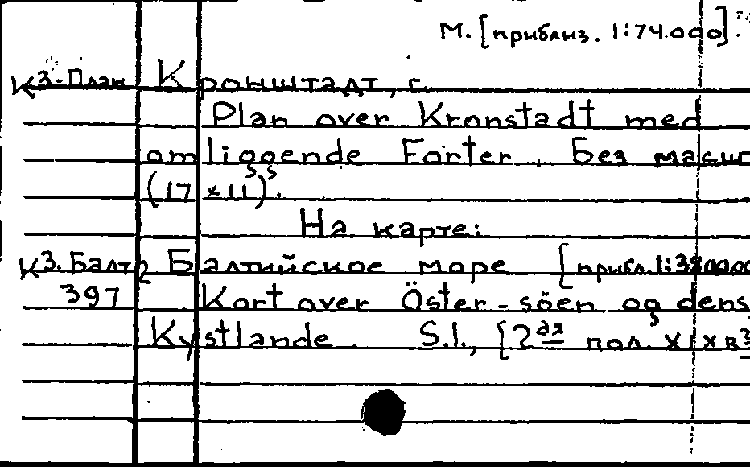 М. [приблиз. 1:74.000].
К3-План Кронштадт, г.
Plan over Kronstadt med
omliggende Forter. Без масш
(17 × 11).
На карте:
К3-Балт Балтийское море [прибл. 1:
397 Kort over Öster-söen og dens
Kystlande. S.l., [2ая пол. XIX в